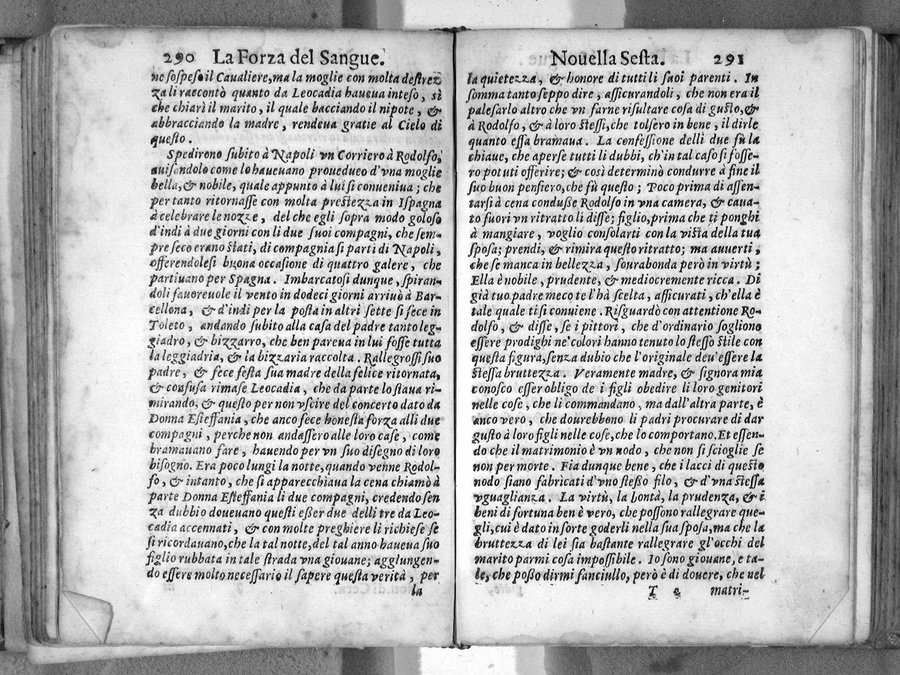 290 La Forza del Sangue.
ne sospeso il Caualiere, ma la moglie con molta destrez
za li raccontò quanto da Leocadia haueua inteso, sì
che chiarì il marito, il quale bacciando il nipote, &
abbracciando la madre, rendeua gratie al Cielo di
questo.
Spedirono subito à Napoli vn Corriero à Rodolfo,
auisandolo come lo haueuano proueduto d'vna moglie
bella, & nobile, quale appunto à lui si conueniua; che
per tanto ritornasse con molta prestezza in Ispagna
à celebrare le nozze, del che egli sopra modo goloso
d'indi à due giorni con li due suoi compagni, che sem-
pre seco erano stati, di compagnia si partì di Napoli,
offerendolesi buona occasione di quattro galere, che
partiuano per Spagna. Imbarcatosi dunque, spiran-
doli fauoreuole il vento in dodeci giorni arriuò à Bar-
cellona, & d'indi per la posta in altri sette si fece in
Toleto, andando subito alla casa del padre tanto leg-
giadro, & bizzarro, che ben pareua in lui fosse tutta
la leggiadria, & la bizzaria raccolta. Rallegrossi suo
padre, & fece festa sua madre della felice ritornata,
& confusa rimase Leocadia, che da parte lo staua ri-
mirando, & questo per non vscire del concerto dato da
Donna Esteffania, che anco fece honesta forza alli due
compagni, perche non andassero alle loro case, come
bramauano fare, hauendo per vn suo disegno di loro
bisogno. Era poco lungi la notte, quando venne Rodol-
fo, & intanto, che si apparecchiaua la cena chiamò à
parte Donna Esteffania li due compagni, credendo sen
za dubbio doueuano questi esser due delli tre da Leo-
cadia accennati, & con molte preghiere li richiese se
si ricordauano, che la tal notte, del tal anno haueua suo
figlio rubbata in tale strada vna giouane; aggiungen-
do essere molto necessario il sapere questa verità, per
la
Nouella Sesta. 291
la quietezza, & honore di tutti li suoi parenti. In
somma tanto seppe dire, assicurandoli, che non era il
palesarlo altro che vn farne risultare cosa di gusto, &
à Rodolfo, & à loro stessi, che tolsero in bene, il dirle
quanto essa bramaua. La confessione delli due fù la
chiaue, che aperse tutti li dubbi, ch'in tal caso si fosse-
ro potuti offerire; & così determinò condurre à fine il
suo buon pensiero, che fù questo; Poco prima di assen-
tarsi à cena condusse Rodolfo in vna camera, & caua-
to fuori vn ritratto li disse; figlio, prima che ti ponghi
à mangiare, voglio consolarti con la vista della tua
sposa; prendi, & rimira questo ritratto; ma auuerti,
che se manca in bellezza, sourabonda però in virtù;
Ella è nobile, prudente, & mediocremente ricca. Di
già tuo padre meco te l'hà scelta, assicurati, ch'ella è
tale quale ti si conuiene. Risguardò con attentione Ro-
dolfo, & disse, se i pittori, che d'ordinario sogliono
essere prodighi ne' colori hanno tenuto lo stesso stile con
questa figura, senza dubio che l'originale deu'essere la
stessa bruttezza. Veramente madre, & signora mia
conosco esser obligo de i figli obedire li loro genitori
nelle cose, che li commandano, ma dall'altra parte, è
anco vero, che dourebbono li padri procurare di dar
gusto à loro figli nelle cose, che lo comportano. Et essen-
do che il matrimonio è vn nodo, che non si scioglie se
non per morte. Fia dunque bene, che i lacci di questo
nodo siano fabricati d'vno stesso filo, & d'vna stessa
vguaglianza. La virtù, la bontà, la prudenza, & i
beni di fortuna ben è vero, che possono rallegrare que-
gli, cui è dato in sorte goderli nella sua sposa, ma che la
bruttezza di lei sia bastante rallegrare gl'occhi del
marito parmi cosa impossibile. Io sono giouane, e ta-
le, che posso dirmi fanciullo, però è di douere, che nel
T 2 matri-